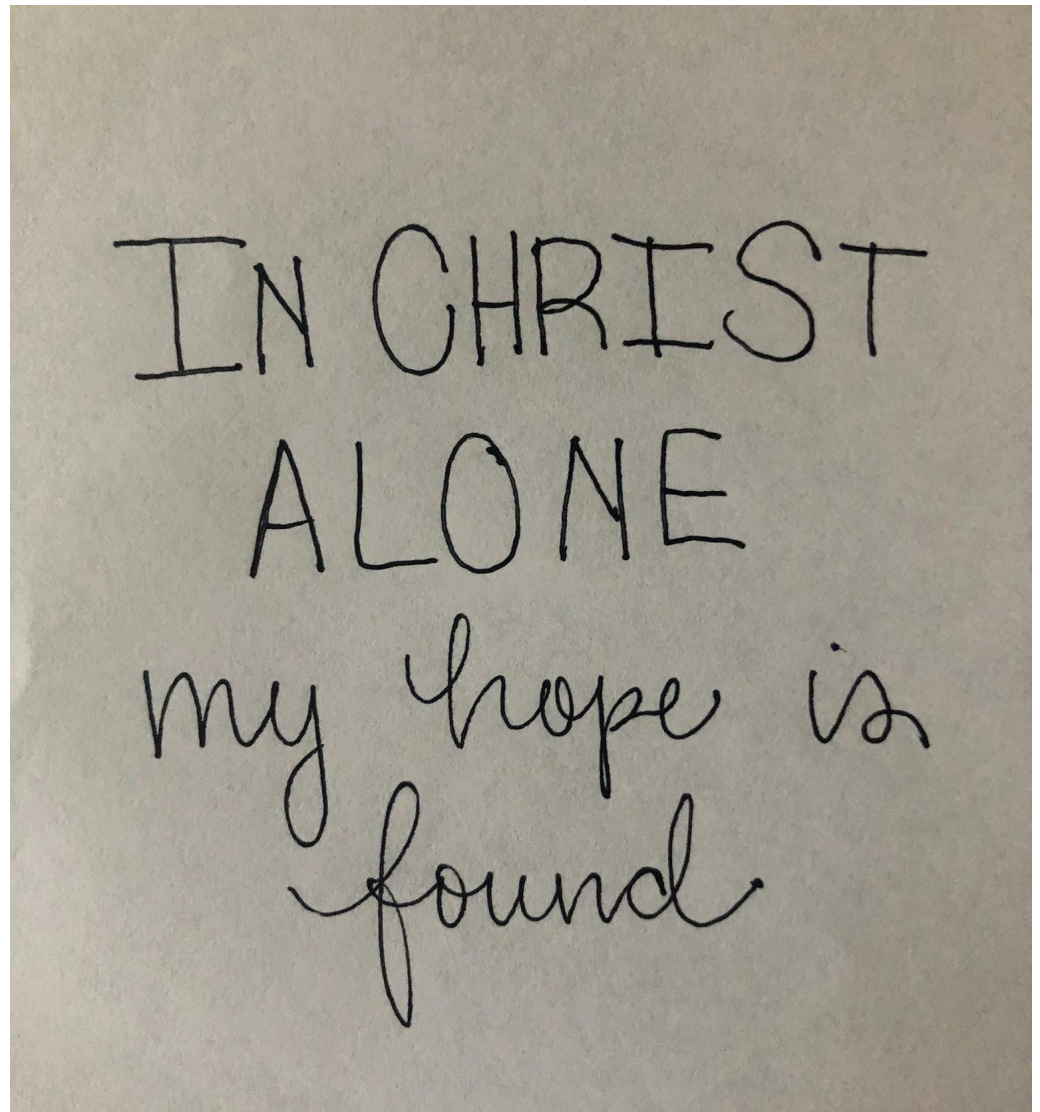 IN CHRIST
ALONE
my hope is
found